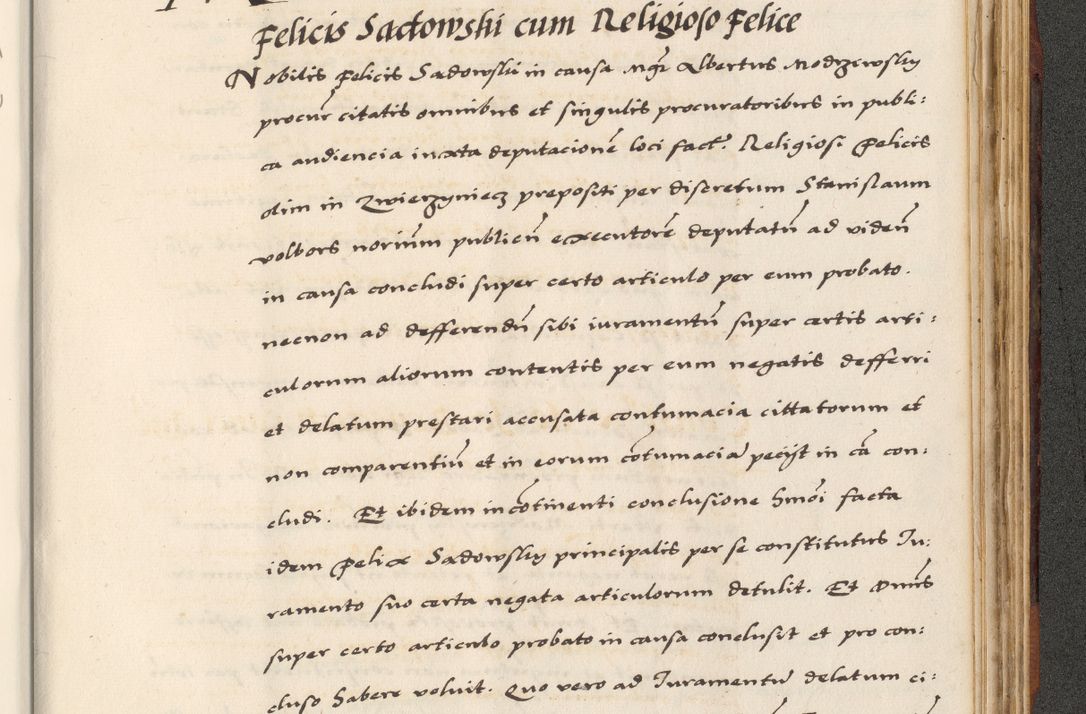 Felicis Sadowski cum Religioso Felice
Nobilis Felicis Sadowski in causa Mgr Albertus Modrzewsky
procur citatis omnibus et singulis procuratoribus in publi:
ca audiencia iuxta deputacionē loci fact. Religiosi Felicis
olim in Zwierzyniecz prepositi per discretum Stanislaum
wolbors noriūm publicū execcutorē deputatū ad vidēn
in causa concludi super certo articulo per eum probato.
necnon ad defferendū sibi iuramentū super certis arti:
culorum aliorum contentis per eum negatis defferri
et delatum prestari accusata contumacia cittatorum et
non comparentiū et in eorum cōtumacia pecijt in cā con:
cludi. Et ibidem in cōtinenti conclusione hmōi facta
idem Felix Sadowsky principalis per se constitutus Iu:
ramento suo certa negata articulorum detulit. Et Dnus
super certo articulo probato in causa conclusit et pro con:
cluso habere voluit. Quo vero ad Iuramentū delatum ci: